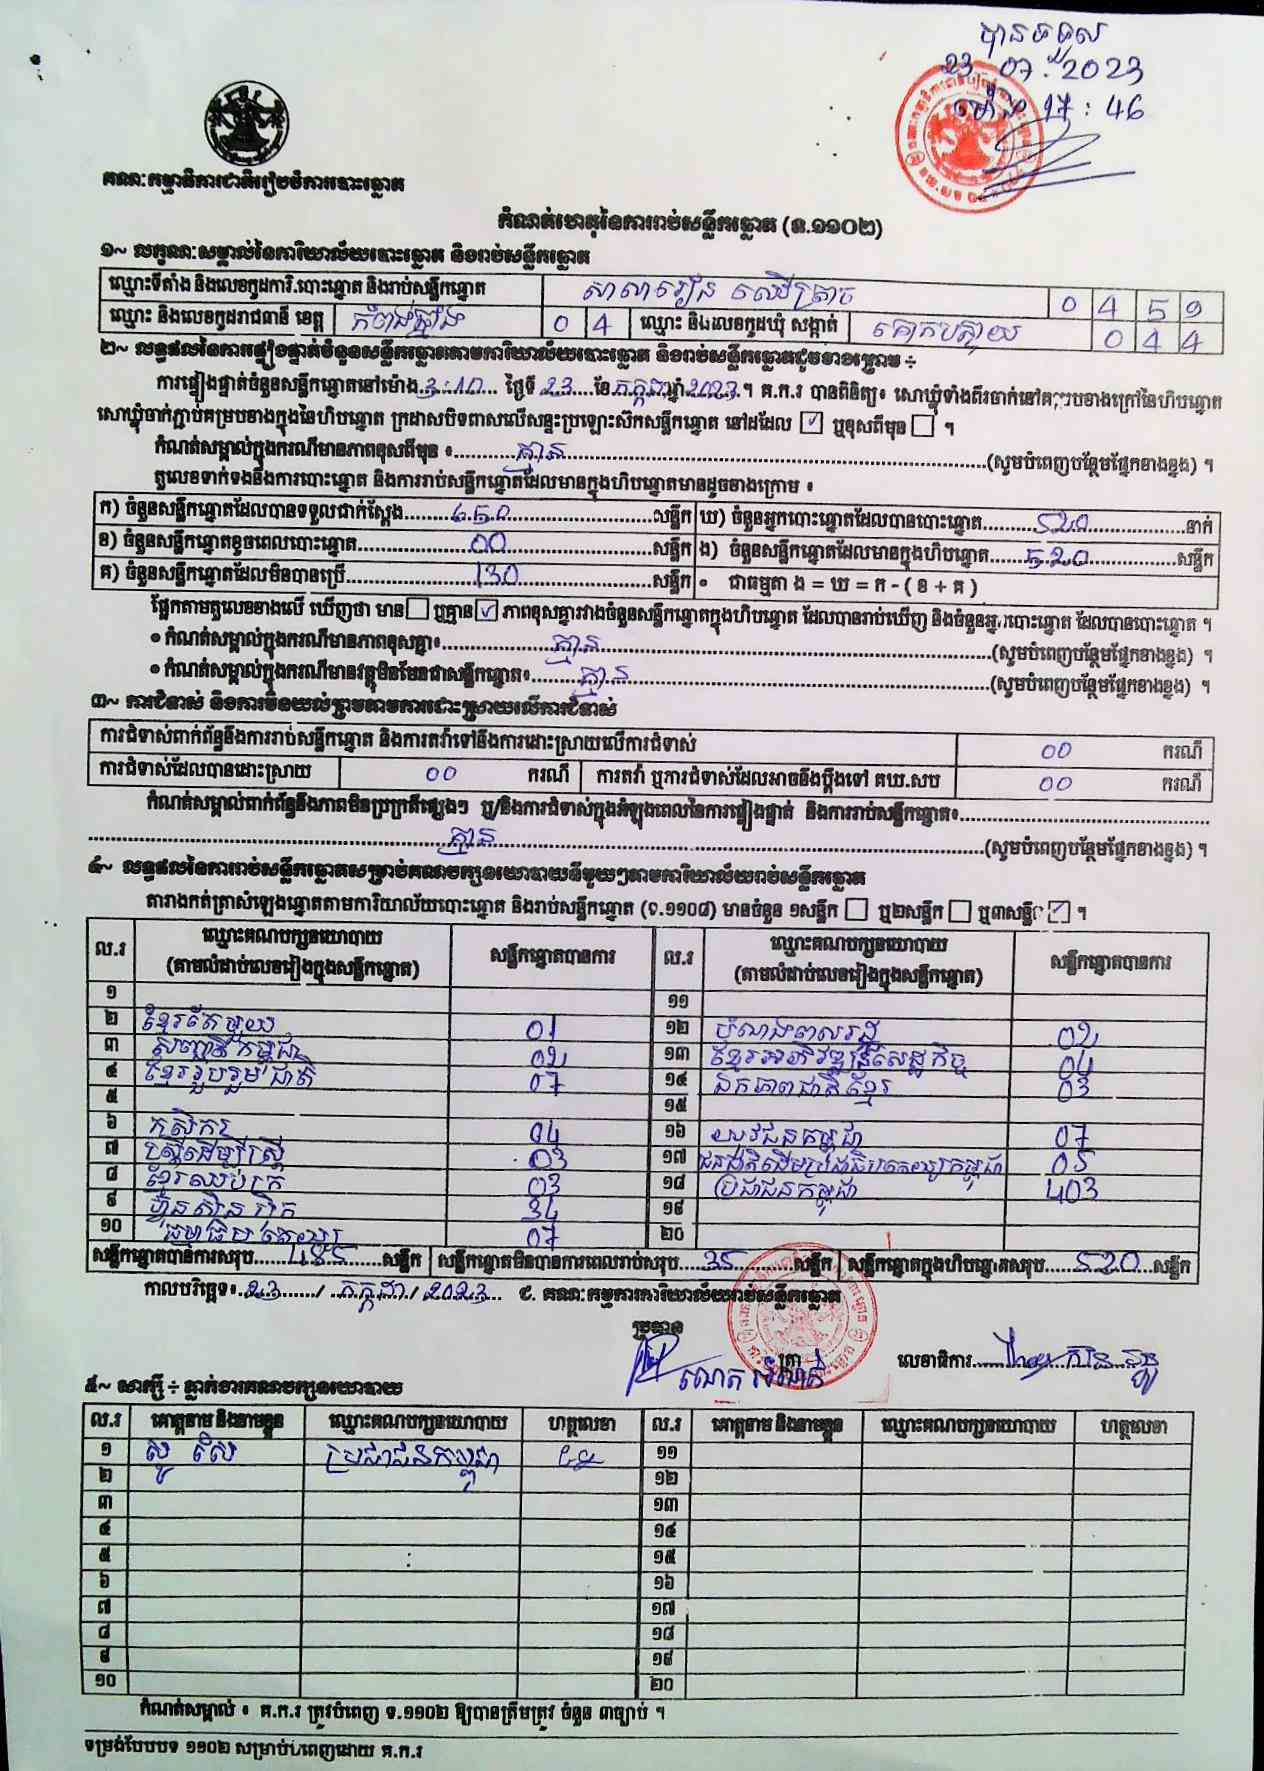 បានទទួល
23.07.2023
ម៉ោង 17:46
គណៈកម្មាធិការជាតិរៀបចំការបោះឆ្នោត
កំណត់ហេតុនៃការរាប់សន្លឹកឆ្នោត (ទ.១១០២)
១~ លក្ខណៈសម្គាល់នៃការិយាល័យបោះឆ្នោត និងរាប់សន្លឹកឆ្នោត
ឈ្មោះទីតាំង និងលេខកូដការិ.បោះឆ្នោត និងរាប់សន្លឹកឆ្នោត សាលារៀន ឈើត្រាច 0 4 5 9
ឈ្មោះ និងលេខកូដរាជធានី ខេត្ត កំពង់ឆ្នាំង 0 4 ឈ្មោះ និងលេខកូដឃុំ សង្កាត់ គោកបន្ទាយ 0 4 4
២~ លទ្ធផលនៃការផ្ទៀងផ្ទាត់ចំនួនសន្លឹកឆ្នោតតាមការិយាល័យបោះឆ្នោត និងរាប់សន្លឹកឆ្នោតដូចខាងក្រោម ÷
ការផ្ទៀងផ្ទាត់ចំនួនសន្លឹកឆ្នោតនៅម៉ោង 3:10 ថ្ងៃទី 23 ខែ កក្កដា ឆ្នាំ 2023 ។ គ.ក.រ បានពិនិត្យ៖ សោឃ្លុំទាំងពីរចាក់នៅគម្របខាងក្រៅនៃហិបឆ្នោត
សោឃ្លុំចាក់ភ្ជាប់គម្របខាងក្នុងនៃហិបឆ្នោត ក្រដាសបិទពាសលើសន្ទះប្រឡោះស៊កសន្លឹកឆ្នោត នៅដដែល ☑ ឬខុសពីមុន ☐ ។
កំណត់សម្គាល់ក្នុងករណីមានភាពខុសពីមុន ៖ គ្មាន (សូមបំពេញបន្ថែមផ្នែកខាងខ្នង) ។
តួលេខទាក់ទងនឹងការបោះឆ្នោត និងការរាប់សន្លឹកឆ្នោតដែលមានក្នុងហិបឆ្នោតមានដូចខាងក្រោម ៖
ក) ចំនួនសន្លឹកឆ្នោតដែលបានទទួលជាក់ស្តែង 650 សន្លឹក ឃ) ចំនួនអ្នកបោះឆ្នោតដែលបានបោះឆ្នោត 520 នាក់
ខ) ចំនួនសន្លឹកឆ្នោតខូចពេលបោះឆ្នោត 00 សន្លឹក ង) ចំនួនសន្លឹកឆ្នោតដែលមានក្នុងហិបឆ្នោត 520 សន្លឹក
គ) ចំនួនសន្លឹកឆ្នោតដែលមិនបានប្រើ 130 សន្លឹក ៖ ជាធម្មតា ង = ឃ = ក - ( ខ + គ )
ផ្អែកតាមតួលេខខាងលើ ឃើញថា មាន ☐ ឬគ្មាន ☑ ភាពខុសគ្នារវាងចំនួនសន្លឹកឆ្នោតក្នុងហិបឆ្នោត ដែលបានរាប់ឃើញ និងចំនួនអ្នកបោះឆ្នោត ដែលបានបោះឆ្នោត ។
• កំណត់សម្គាល់ក្នុងករណីមានភាពខុសគ្នា៖ គ្មាន (សូមបំពេញបន្ថែមផ្នែកខាងខ្នង) ។
• កំណត់សម្គាល់ក្នុងករណីមានវត្ថុមិនមែនជាសន្លឹកឆ្នោត៖ គ្មាន (សូមបំពេញបន្ថែមផ្នែកខាងខ្នង) ។
៣~ ការជំទាស់ និងការមិនយល់ព្រមតាមការដោះស្រាយលើការជំទាស់
ការជំទាស់ពាក់ព័ន្ធនឹងការរាប់សន្លឹកឆ្នោត និងការតវ៉ាទៅនឹងការដោះស្រាយលើការជំទាស់ 00 ករណី
ការជំទាស់ដែលបានដោះស្រាយ 00 ករណី ការតវ៉ា ឬការជំទាស់ដែលអាចនឹងប្តឹងទៅ គឃ.សប 00 ករណី
កំណត់សម្គាល់ពាក់ព័ន្ធនឹងភាពមិនប្រក្រតីផ្សេងៗ ឬ/និងការជំទាស់ក្នុងអំឡុងពេលនៃការផ្ទៀងផ្ទាត់ និងការរាប់សន្លឹកឆ្នោត៖
គ្មាន (សូមបំពេញបន្ថែមផ្នែកខាងខ្នង) ។
៤~ លទ្ធផលនៃការរាប់សន្លឹកឆ្នោតសម្រាប់គណបក្សនយោបាយនីមួយៗតាមការិយាល័យរាប់សន្លឹកឆ្នោត
តារាងកត់ត្រាសំឡេងឆ្នោតតាមការិយាល័យបោះឆ្នោត និងរាប់សន្លឹកឆ្នោត (ទ.១១០៨) មានចំនួន ១សន្លឹក ☐ ឬ២សន្លឹក ☐ ឬ៣សន្លឹក ☑ ។
ល.រ ឈ្មោះគណបក្សនយោបាយ (តាមលំដាប់លេខរៀងក្នុងសន្លឹកឆ្នោត) សន្លឹកឆ្នោតបានការ ល.រ ឈ្មោះគណបក្សនយោបាយ (តាមលំដាប់លេខរៀងក្នុងសន្លឹកឆ្នោត) សន្លឹកឆ្នោតបានការ
១ ១១
២ ខ្មែរតែមួយ 01 ១២ បំណងពលរដ្ឋ 02
៣ សញ្ជាតិកម្ពុជា 02 ១៣ ខ្មែរអភិវឌ្ឍន៍សេដ្ឋកិច្ច 04
៤ ខ្មែររួបរួមជាតិ 07 ១៤ ឯកភាពជាតិខ្មែរ 03
៥ ១៥
៦ កសិករ 04 ១៦ យុវជនកម្ពុជា 07
៧ ស្ត្រីដើម្បីស្ត្រី 03 ១៧ ជនជាតិដើមប្រជាធិបតេយ្យកម្ពុជា 05
៨ ខ្មែរឈប់ក្រ 03 ១៨ ប្រជាជនកម្ពុជា 403
៩ ហ៊្វុនស៊ិនប៉ិច 34 ១៩
១០ ធម្មាធិបតេយ្យ 07 ២០
សន្លឹកឆ្នោតបានការសរុប 485 សន្លឹក សន្លឹកឆ្នោតមិនបានការពេលរាប់សរុប 35 សន្លឹក សន្លឹកឆ្នោតក្នុងហិបឆ្នោតសរុប 520 សន្លឹក
កាលបរិច្ឆេទ៖ 23 / កក្កដា / 2023 ជ. គណៈកម្មការការិយាល័យរាប់សន្លឹកឆ្នោត
ប្រធាន
ត្រា លេខាធិការ
៥~ សាក្សី ÷ ភ្នាក់ងារគណបក្សនយោបាយ
ល.រ គោត្តនាម និងនាមខ្លួន ឈ្មោះគណបក្សនយោបាយ ហត្ថលេខា ល.រ គោត្តនាម និងនាមខ្លួន ឈ្មោះគណបក្សនយោបាយ ហត្ថលេខា
១ សូ សែ ប្រជាជនកម្ពុជា ១១
២ ១២
៣ ១៣
៤ ១៤
៥ ១៥
៦ ១៦
៧ ១៧
៨ ១៨
៩ ១៩
១០ ២០
កំណត់សម្គាល់ ៖ គ.ក.រ ត្រូវបំពេញ ទ.១១០២ ឱ្យបានត្រឹមត្រូវ ចំនួន ៣ច្បាប់ ។
ទម្រង់បែបបទ ១១០២ សម្រាប់បំពេញដោយ គ.ក.រ